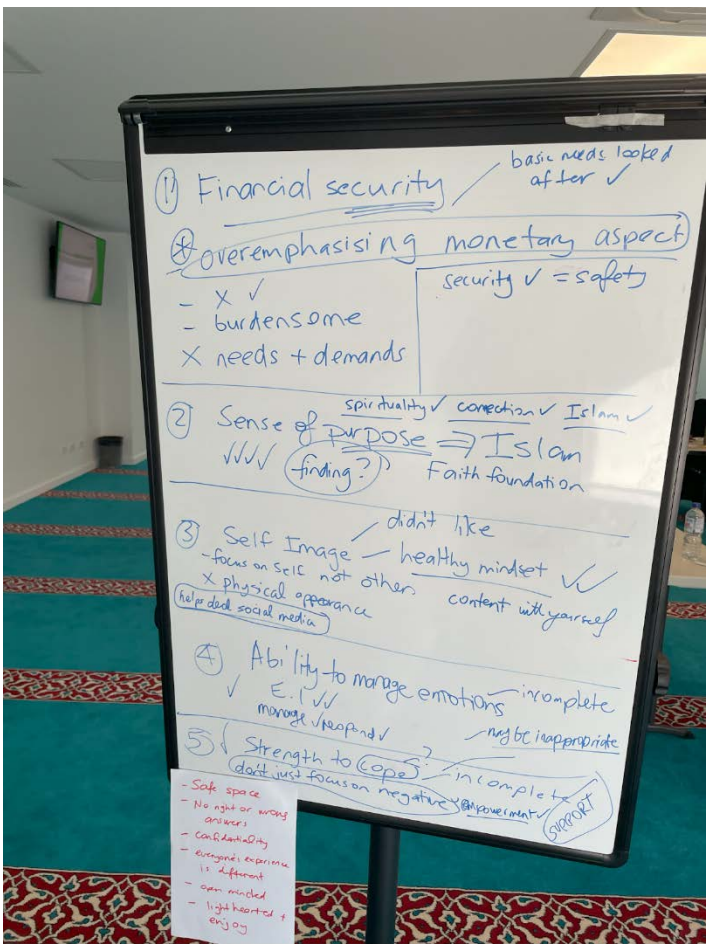 ① Financial security
basic needs looked
after ✓
* overemphasising monetary aspect
- X ✓
- burdensome
X needs + demands
security ✓ = safety
② Sense of purpose ⇒ Islam
spirituality ✓ connection ✓ Islam ✓
✓✓✓✓ finding?
Faith foundation
③ Self Image
didn't like
- healthy mindset ✓✓
- focus on self not other.
X physical appearance
content with yourself
helpe dead social media
④ Ability to manage emotions - incomplete
✓ E.I ✓✓
manage ✓ respond ✓
may be inappropriate
5 Strength to cope ? - incomplete
don't just focus on negative
empowerment ✓
SUPPORT
- Safe space
- No right or wrong
answers
- Confidentiality
- everyone's experience
is different
- open minded
- lighthearted +
enjoy